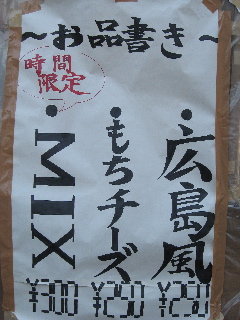 ～お品書き～
・広島風
¥250
・もちチーズ
¥250
時間
限定
・MIX
¥300